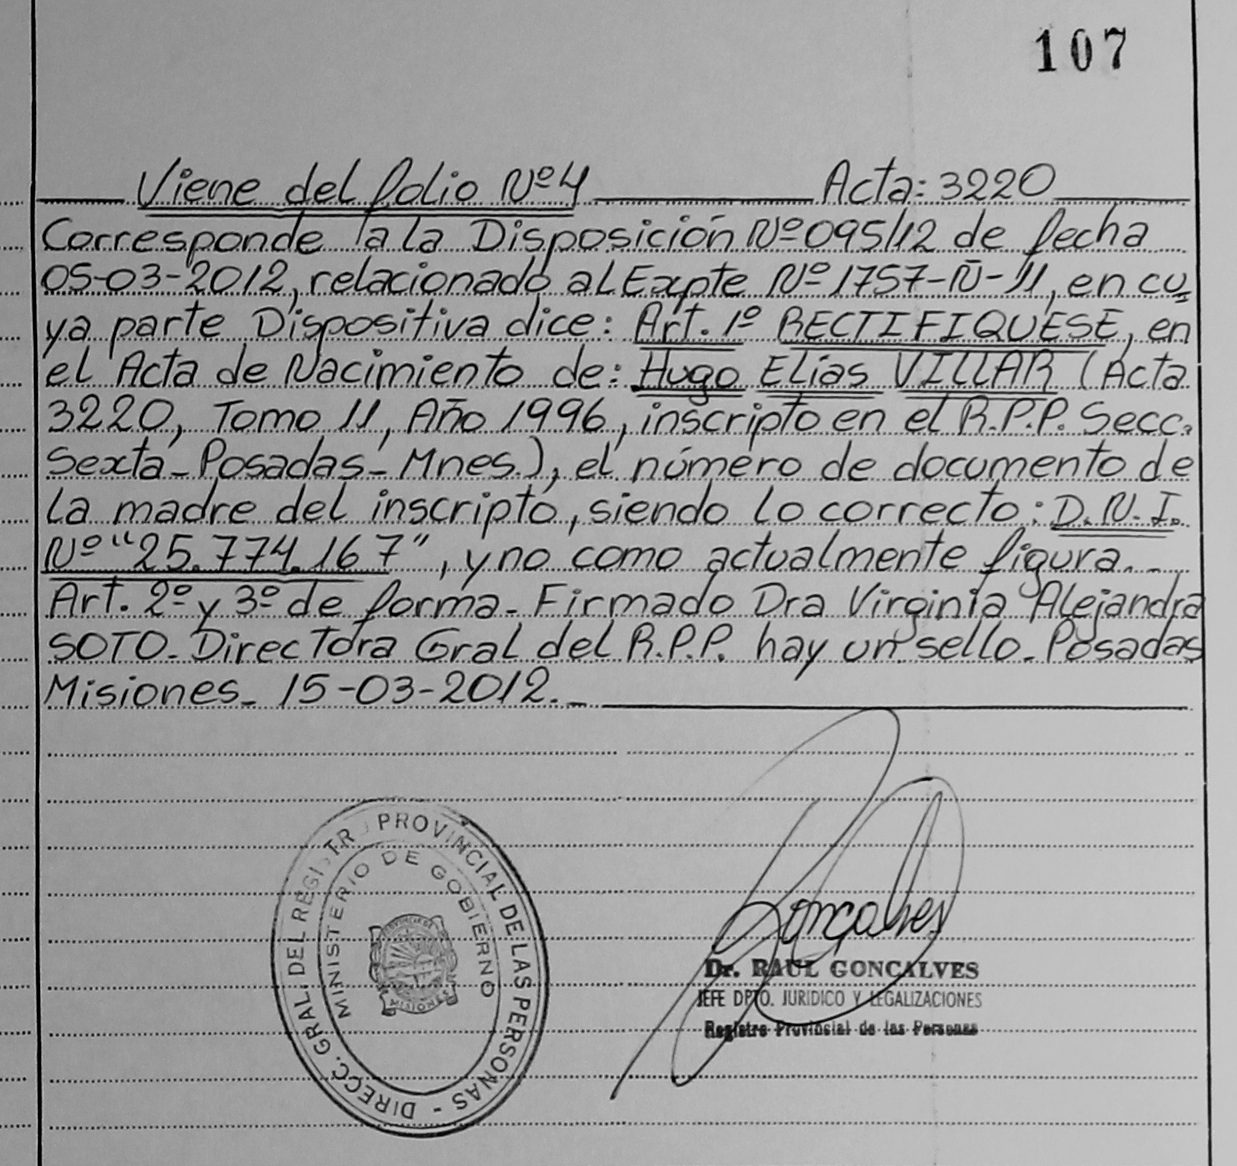 107
Viene del folio Nº4 Acta: 3220
Corresponde a la Disposición Nº 095/12 de fecha
05-03-2012, relacionado al Expte Nº 1757-Ñ-11, en cu
ya parte Dispositiva dice: Art. 1º RECTIFIQUESE, en
el Acta de Nacimiento de: Hugo Elías VILLAR (Acta
3220, Tomo 11, Año 1996, inscripto en el R.P.P. Secc.
Sexta-Posadas-Mnes.), el número de documento de
la madre del inscripto, siendo lo correcto: D.N.I.
Nº "25.774.167", y no como actualmente figura.-
Art. 2º y 3º de forma- Firmado Dra Virginia Alejandra
SOTO- Directora Gral del R.P.P. hay un sello- Posadas
Misiones- 15-03-2012.-
DIRECC. GRAL. DEL REGISTRO PROVINCIAL DE LAS PERSONAS -
MINISTERIO DE GOBIERNO
MISIONES
Goncalves
Dr. RAUL GONCALVES
JEFE DPTO. JURIDICO Y LEGALIZACIONES
Registro Provincial de las Personas